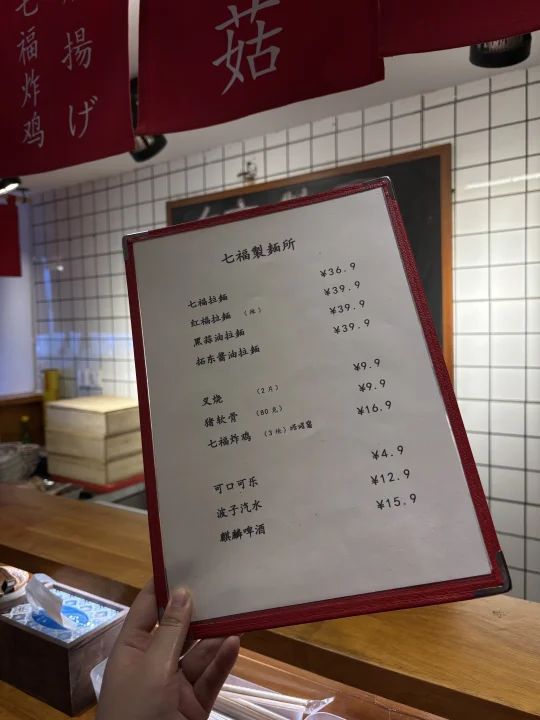 七福炸鸡
揚げ
菇
七福製麺所
七福拉麺 ¥36.9
红福拉麺 (辣) ¥39.9
黑蒜油拉麺 ¥39.9
拓东酱油拉麺 ¥39.9
叉烧 (2片) ¥9.9
猪软骨 (80克) ¥9.9
七福炸鸡 (3块) ¥16.9
可口可乐 ¥4.9
波子汽水 ¥12.9
麒麟啤酒 ¥15.9